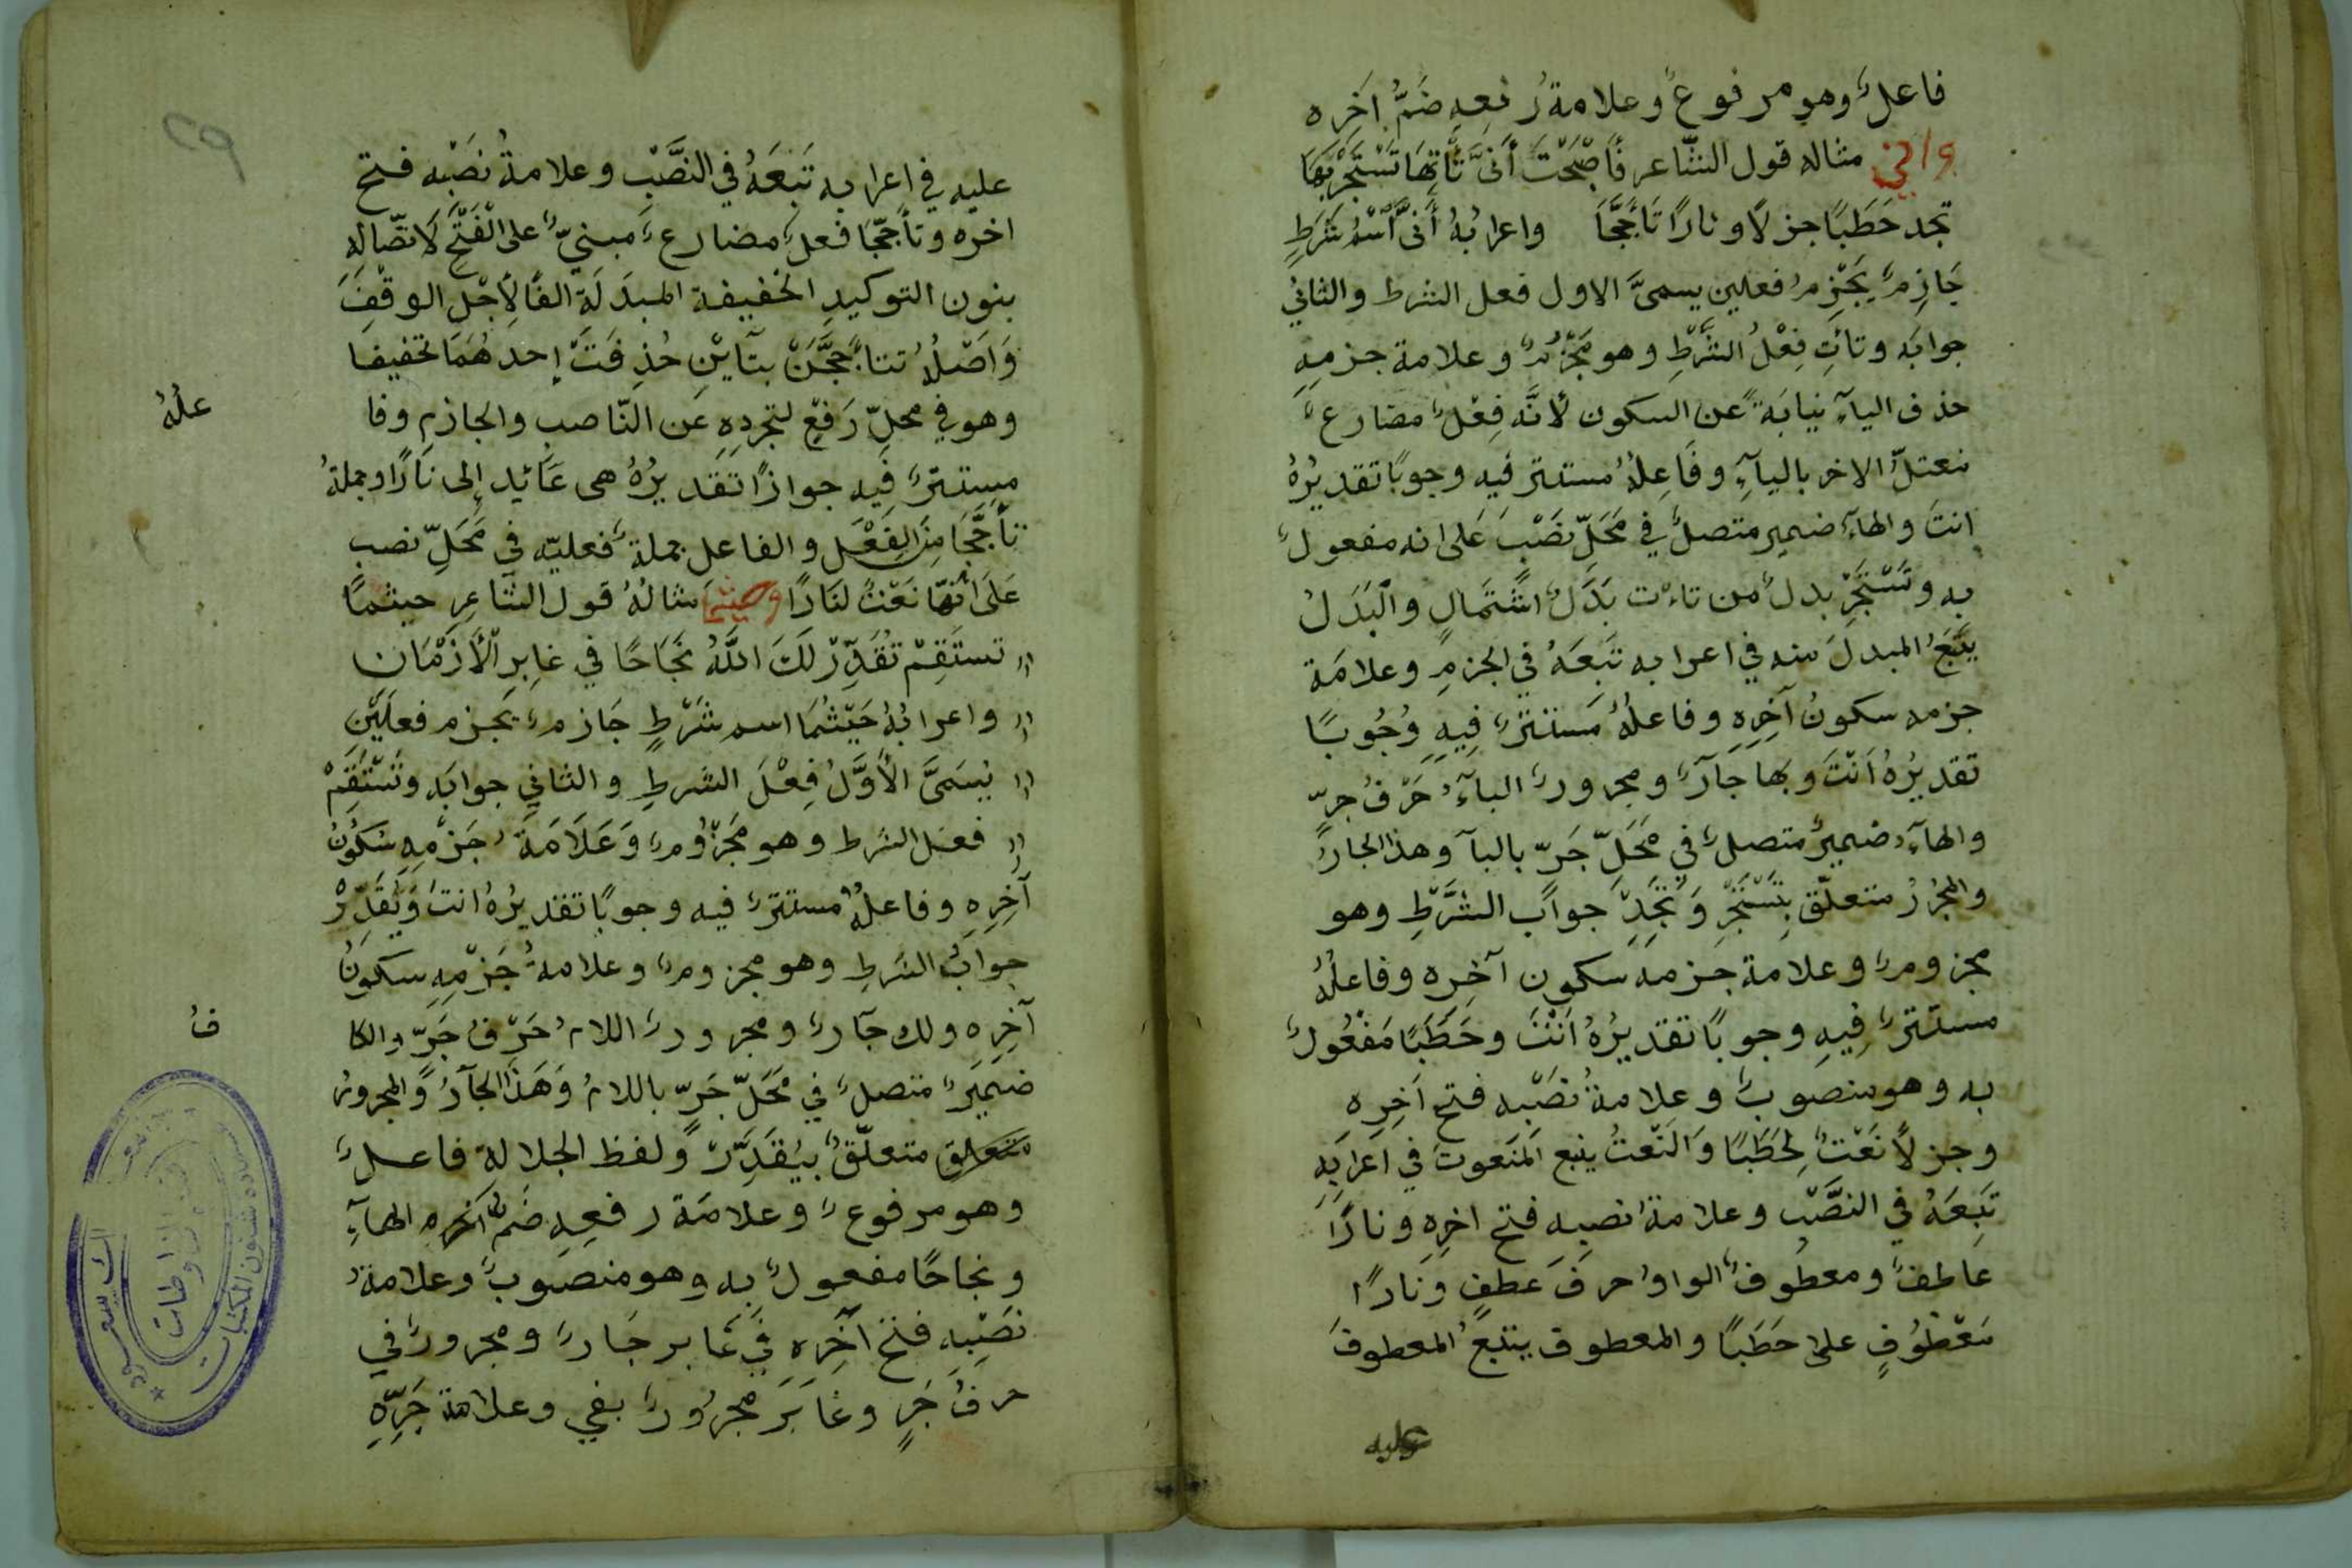 فاعلٌ وهو مرفوعٌ وعلامةُ رفعهِ ضَمُّ آخره
وانّى مثاله قول الشّاعر فَأَصْبَحْتَ أَنَّى تَأْتِهَا تَسْتَجِرْ بِهَا
تجد حَطَبًا جزلًا ونارًا تَأَجَّجَا واعرابُهُ أَنَّى اسْمُ شَرْطٍ
جَازِمٌ يَجْزِمُ فعلين يسمىَّ الاول فعل الشرط والثاني
جوابَه وتأتِ فِعْلُ الشَّرْطِ وهو مَجْزُومٌ وعلامة جزمِهِ
حذف الياءِ نيابَةً عن السكون لأنَّه فِعْلٌ مضارعٌ
معتلُّ الاخر بالياءِ وفَاعِلُهُ مستتر فيه وجوبًا تقديرُهُ
انتَ والهاءُ ضمير متصلٌ في مَحَلِّ نَصْبٍ عَلى انه مفعولٌ
به وتَسْتَجِرْ بدلٌ من تاءت بَدَلُ اشْتِمَالٍ والْبَدَلُ
يَتْبَعُ المبدلَ منه في اعرابه تَبَعَهُ في الجزمِ وعلامَة
جزمه سكونُ آخِرِهِ وفاعلُهُ مستترٌ فِيهِ وُجُوبًا
تقديرُهُ اَنْتَ وبها جارٌّ ومجرورٌ الباءُ حَرْفُ جرٍّ
والهاءُ ضميرٌ متصلٌ في مَحَلِّ جَرٍّ بالباء وهذا الجارُّ
والمجرُرُ متعلّق بِتَسْتَجِرْ وَتَجِدْ جوابُ الشَّرْطِ وهو
مجزومٌ وعلامة جزمه سكون آخِره وفاعلُهُ
مستترٌ فِيهِ وجوبًا تقديرُهُ اَنْتَ وحَطَبًا مَفْعُولٌ
به وهو منصوبٌ وعلامةُ نَصْبِه فتح اَخِرِهِ
وجزلًا نَعْتٌ لِحَطَبًا وَالنَّعْتُ يتبع المَنعوتَ في اعرَابِهِ
تَبِعَهُ في النصَّبْ وعلامةُ نصبِهِ فتح اخِرِهِ ونارًا
عَاطِفٌ ومعطُوفٌ الواوُ حرفَ عَطفٍ ونَارًا
مَعْطُوفٍ على حَطَبًا والمعطوف يتبَعُ المعطوفَ
عليه
عليه في اعرابه تَبَعَهُ في النصَّبِْ وعلامةُ نصَبْهِ فتح
اخره وتأجّجَا فعلٌ مضارعٌ مبنيٌّ على الْفَتْحِ لاتّصالِهِ
بنون التوكيدِ الخفيفة المبدَلَة الفًا لِأجْلِ الوقْفِ
وَاَصْلُهُ تتأجَّجَنْ بتاءَيْنِ حُذِفَتْ إِحدهُمَا تخفيفا
وهو في محلِّ رَفْعٍ لتجردِهِ عَن النّاصبِ والجازمِ وفا
علُهُ
مستترٌ فيه جوازًا تقديرُهُ هى عَائِد إِلى نَارًا وجملةُ
تأجَّجَا مِنَ الفِعْلِ والفاعل جملةٌ فعليّه في مَحَلِّ نصبٍ
عَلَى أَنَّها نَعْتٌ لنَارًا وحيثما مثالُهُ قول الشّاعِرِ حيثمَا
تستَقِمْ تُقَدِّرْ لَكَ اللَّهُ نَجَاحًا في غابِرِ الْأَزْمَانِ
واعرابُهُ حَيْثُمَا اسم شَرْطٍ جَازمٌ يجزم فعلَيْنِ
يُسَمىَّ الأَوَّلُ فِعْلَ الشَرطِ والثاني جوابَه وتَسْتَقِمْ
فعل الشرط وهو مَجْزُومٌ وَعَلَامَةُ جَزْمِهِ سُكُونُ
آخِرِهِ وفاعلُهُ مستترٌ فيه وجوبًا تقديرُهُ انتَ وَيُقَدِّرْ
جوابُ الشرطِ وهو مجزومٌ وعلامةُ جَزْمِهِ سكونُ
آخِرِهِ ولك جَارٌ ومجرورٌ اللامُ حَرْفُ جَرٍّ والكا
فُ
ضَمِيرٌ متصلٌ في مَحَلِّ جَرٍّ باللامُ وَهَذَا الجَارُّ والمجرورُ
متعلق متعلّقٌ بيُقَدِّرْ ولفظ الجلالةِ فاعلٌ
وهو مرفوعٌ وعلامَة رفعِهِ ضَمُّ آخره الهاءِ
ونجاحًا مفعولٌ به وهو منصوبٌ وعلامةُ
نصَبْهِ فتح آخِرِهِ في غَابر جَارٌ ومجرورٌ في
حرفُ جَرٍ وغابَرَ مجرُورٌ بفي وعلامة جَرِّهِ
٢٩